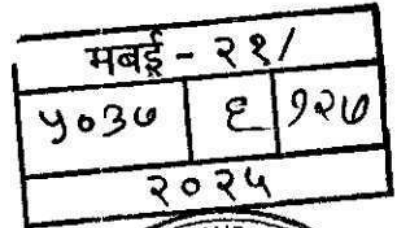 मबई - २१/
५०३७ ६ १२७
२०२५